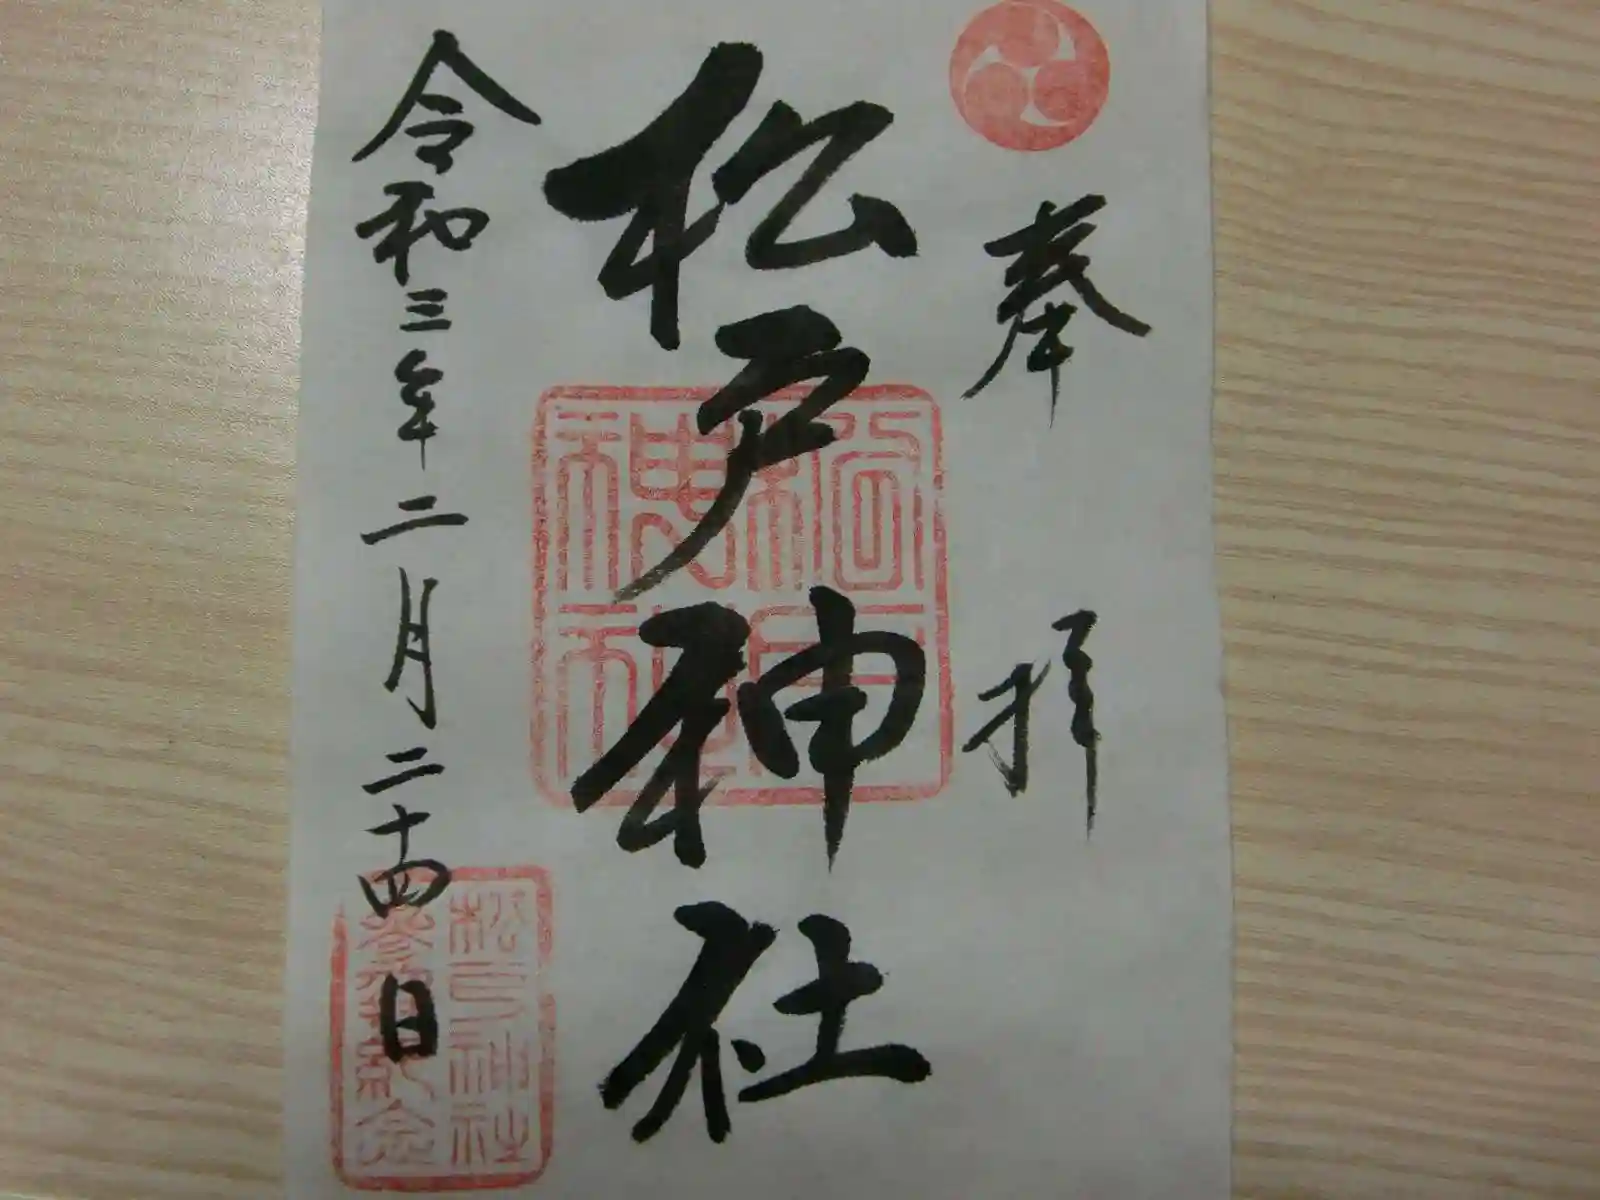 奉拝
松戸神社
令和三年二月二十四日
松戸神社
松戸神社
参拝記念